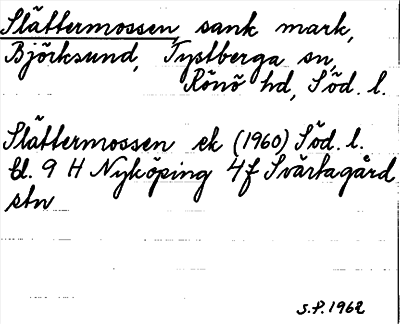 Slättermossen, sank mark,
Björksund, Tystberga sn,
Rönö hd, Söd. l.
Slättermossen ek (1960) Söd. l.
bl. 9 H Nyköping 4f Svärtagård
stn
S.P. 1962